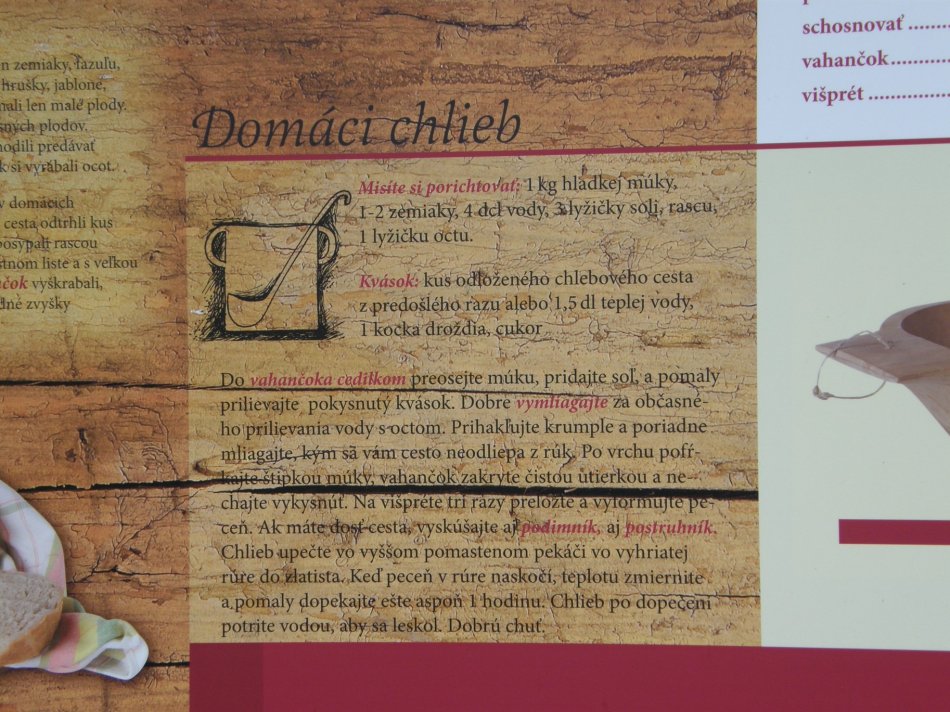 n zemiaky, fazuľu,
hrušky, jablone,
nali len malé plody.
snych plodov.
nodili predávať
k si vyrábali ocot.
v domácich
cesta odtrhli kus
posypali rascou
stnom liste a s veľkou
čok vyškrabali,
dné zvyšky
Domáci chlieb
Misíte si porichtovať: 1 kg hladkej múky,
1-2 zemiaky, 4 dcl vody, 3 lyžičky soli, rascu,
1 lyžičku octu.
Kvások: kus odloženého chlebového cesta
z predošlého razu alebo 1,5 dl teplej vody,
1 kocka droždia, cukor
Do vahančoka cedilkom preosejte múku, pridajte soľ, a pomaly
prilievajte pokysnutý kvások. Dobre vymliagajte za občasné-
ho prilievania vody s octom. Prihakľujte krumple a poriadne
mliagajte, kým sa vám cesto neodliepa z rúk. Po vrchu pofŕ-
kajte štipkou múky, vahančok zakryte čistou utierkou a ne-
chajte vykysnúť. Na višpréte tri razy preložte a vyformujte pe-
ceň. Ak máte dosť cesta, vyskúšajte aj podimník, aj postruhník.
Chlieb upečte vo vyššom pomastenom pekáči vo vyhriatej
rúre do zlatista. Keď peceň v rúre naskočí, teplotu zmiernite
a pomaly dopekajte ešte aspoň 1 hodinu. Chlieb po dopečení
potrite vodou, aby sa leskol. Dobrú chuť.
schosnovať ..........
vahančok..........
višprét ..........